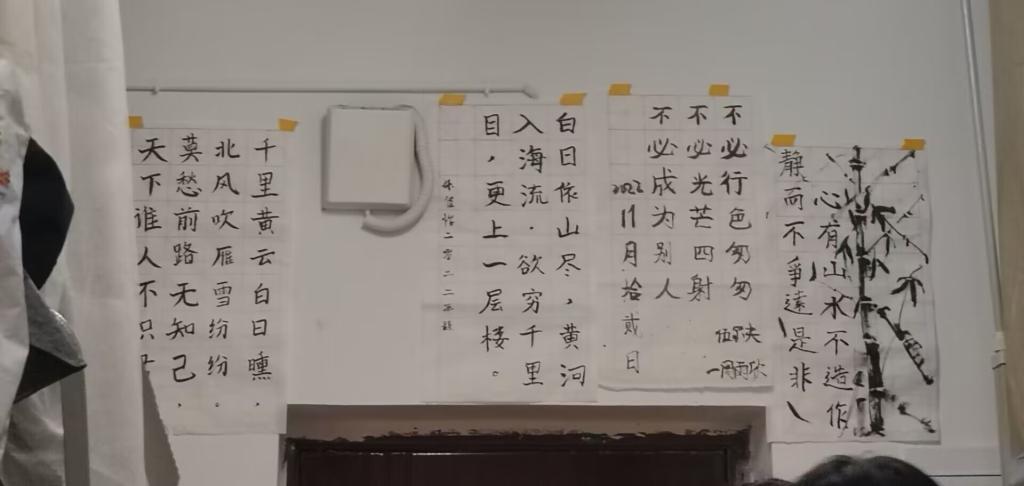 千里黄云白日曛,
北风吹雁雪纷纷。
莫愁前路无知己,
天下谁人不识
白日依山尽,黄河
入海流.欲穷千里
目,更上一层楼。
二零二二
不必行色匆匆
不必光芒四射
不必成为别人
2022 11月拾贰日
心有山水不造作
静而不爭遠是非